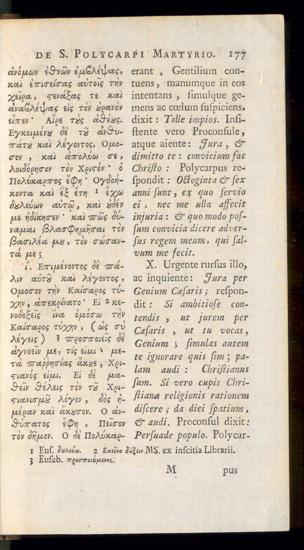 DE S. POLYCARPI MARTYRIO. 177
ἀνόμων ἐθνῶν ἐμβλέψας,
καὶ ἐπισείσας αὐτοῖς τὴν
χεῖρα, στενάξας τε καὶ
ἀναβλέψας εἰς τὸν οὐρανὸν
εἶπεν· Αἶρε τοὺς ἀθέους.
Ἐγκειμένου δὲ τοῦ ἀνθυ-
πάτου καὶ λέγοντος, Ὄμο-
σον, καὶ ἀπολύω σε,
λοιδόρησον τὸν Χριστόν· ὁ
Πολύκαρπος ἔφη· Ὀγδοή-
κοντα καὶ ἓξ ἔτη 1 ἔχω
δουλεύων αὐτῷ, καὶ οὐδέν
με ἠδίκησεν· καὶ πῶς δύ-
ναμαι βλασφημῆσαι τὸν
βασιλέα μου, τὸν σώσαν-
τά με;
ι. Ἐπιμένοντος δὲ πά-
λιν αὐτοῦ καὶ λέγοντος,
Ὄμοσον τὴν Καίσαρος τύ-
χην, ἀπεκρίνατο· Εἰ 2 κε-
νοδοξεῖς ἵνα ὀμόσω τὴν
Καίσαρος τύχην, (ὡς σὺ
λέγεις) 3 προσποιεῖς δὲ
ἀγνοεῖν με, τίς εἰμι· με-
τὰ παρρησίας ἄκουε, Χρισ-
τιανός εἰμι. Εἰ δὲ μα-
θεῖν θέλεις τὸν τοῦ Χρισ-
τιανισμοῦ λόγον, δὸς ἡ-
μέραν καὶ ἄκουσον. Ὁ ἀν-
θύπατος ἔφη, Πεῖσον
τὸν δῆμον. Ὁ δὲ Πολύκαρ-
erant, Gentilium con-
tuens, manumque in eos
intentans, simulque ge-
mens ac cœlum suspiciens,
dixit: Tolle impios. Insi-
stente vero Proconsule,
atque aiente: Jura, &
dimitto te: convicium fac
Christo: Polycarpus re-
spondit: Octoginta & sex
anni sunt, ex quo servio
ei, nec me ulla affecit
injuria: & quo modo pos-
sum convicia dicere adver-
sus regem meum, qui sal-
vum me fecit.
X. Urgente rursus illo,
ac inquiente: Jura per
Genium Cæsaris; respon-
dit: Si ambitiose con-
tendis, ut jurem per
Cæsaris, ut tu vocas,
Genium; simulas autem
te ignorare quis sim; pa-
lam audi: Christianus
sum. Si vero cupis Chri-
stianæ religionis rationem
discere; da diei spatium,
& audi. Proconsul dixit:
Persuade populo. Polycar-
1 Eus. δουλεύω. 2 Ἐκεῖνο δόξειν MS. ex inscitia Librarii.
3 Euseb. προσποιούμενος.
M pus